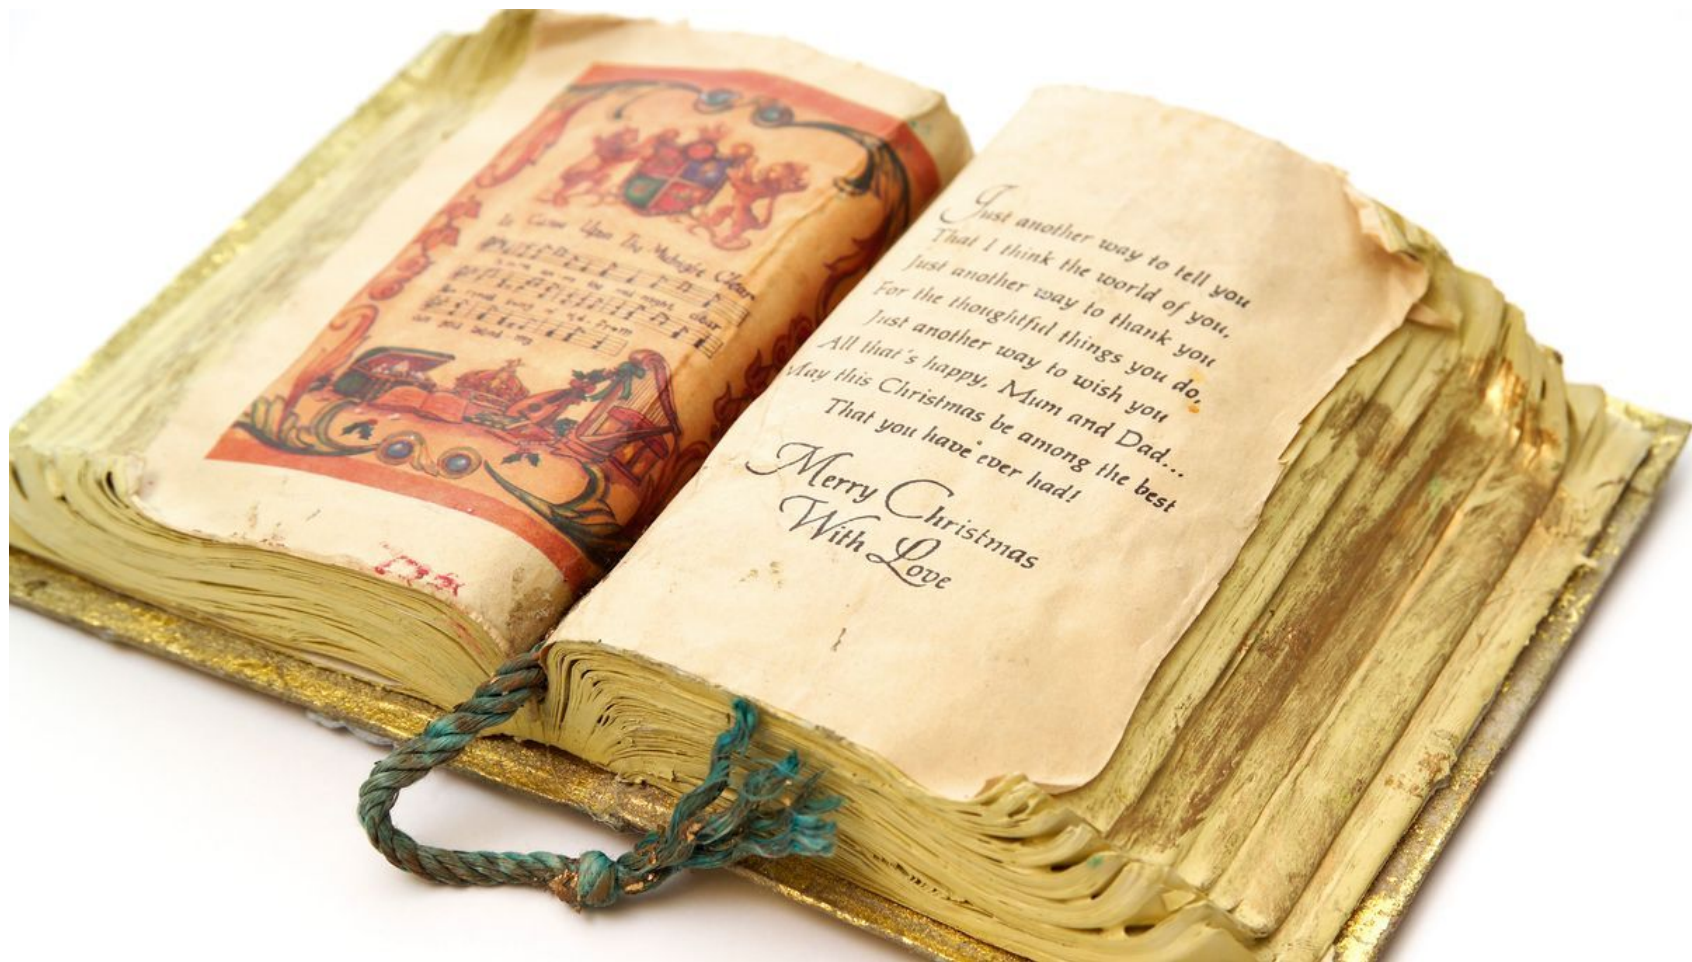 It Came Upon The Midnight Clear
Just another way to tell you
That I think the world of you,
Just another way to thank you
For the thoughtful things you do,
Just another way to wish you
All that's happy, Mum and Dad...
May this Christmas be among the best
That you have ever had!
Merry Christmas
With Love